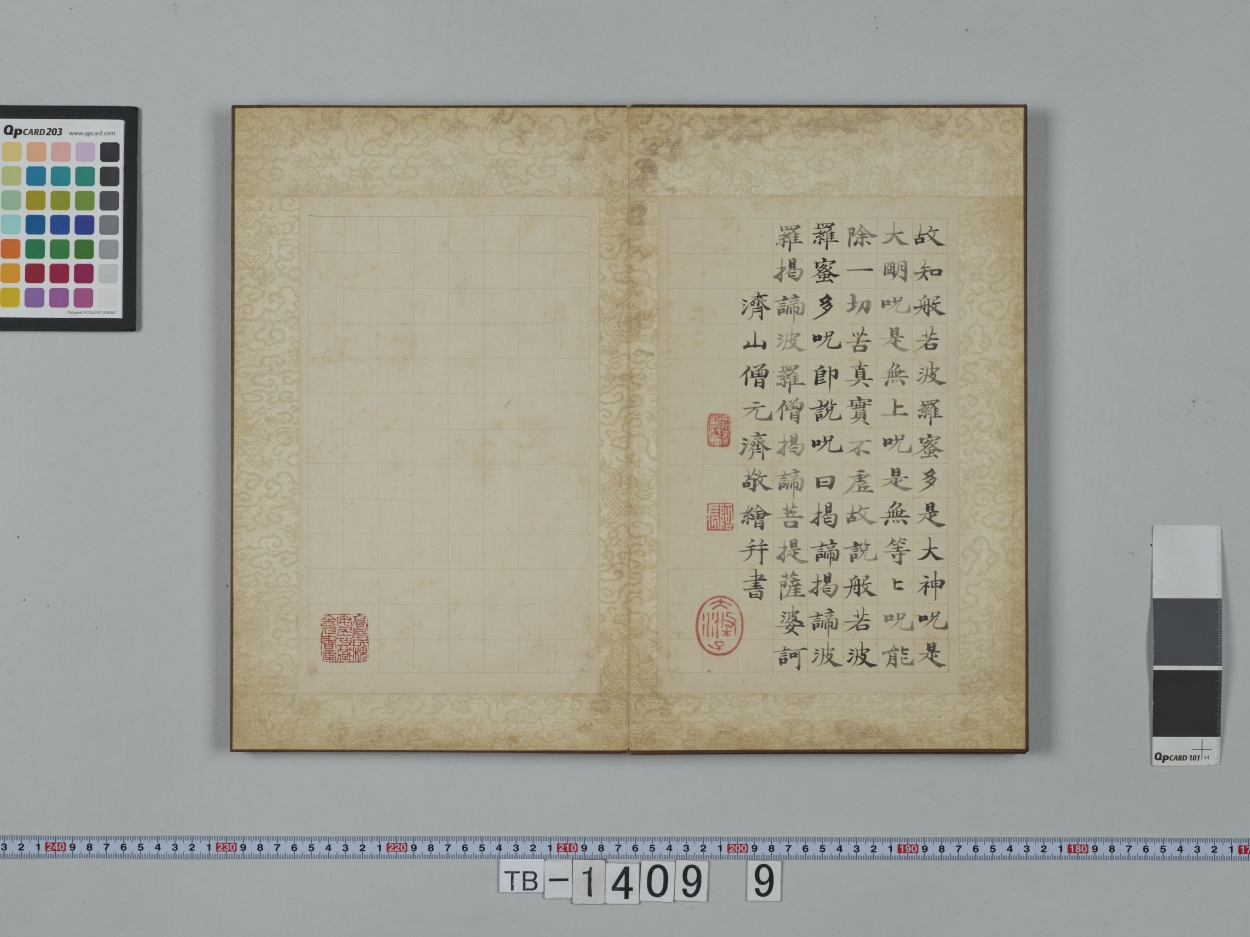 故知般若波羅蜜多是大神呪是
大朙呪是無上呪是無等〻呪能
除一切苦真實不虛故說般若波
羅蜜多呪即說呪曰揭諦揭諦波
羅揭諦波羅僧揭諦菩提薩婆訶
濟山僧元濟敬繪并書
大滌子
QpCARD203 www.qpcard.com
QpCARD 101 v4
3 2 1 240 9 8 7 6 5 4 3 2 1 230 9 8 7 6 5 4 3 2 1 220 9 8 7 6 5 4 3 2 1 210 9 8 7 6 5 4 3 2 1 200 9 8 7 6 5 4 3 2 1 190 9 8 7 6 5 4 3 2 1 180 9 8 7 6 5 4 3 2 1
TB-1409 9